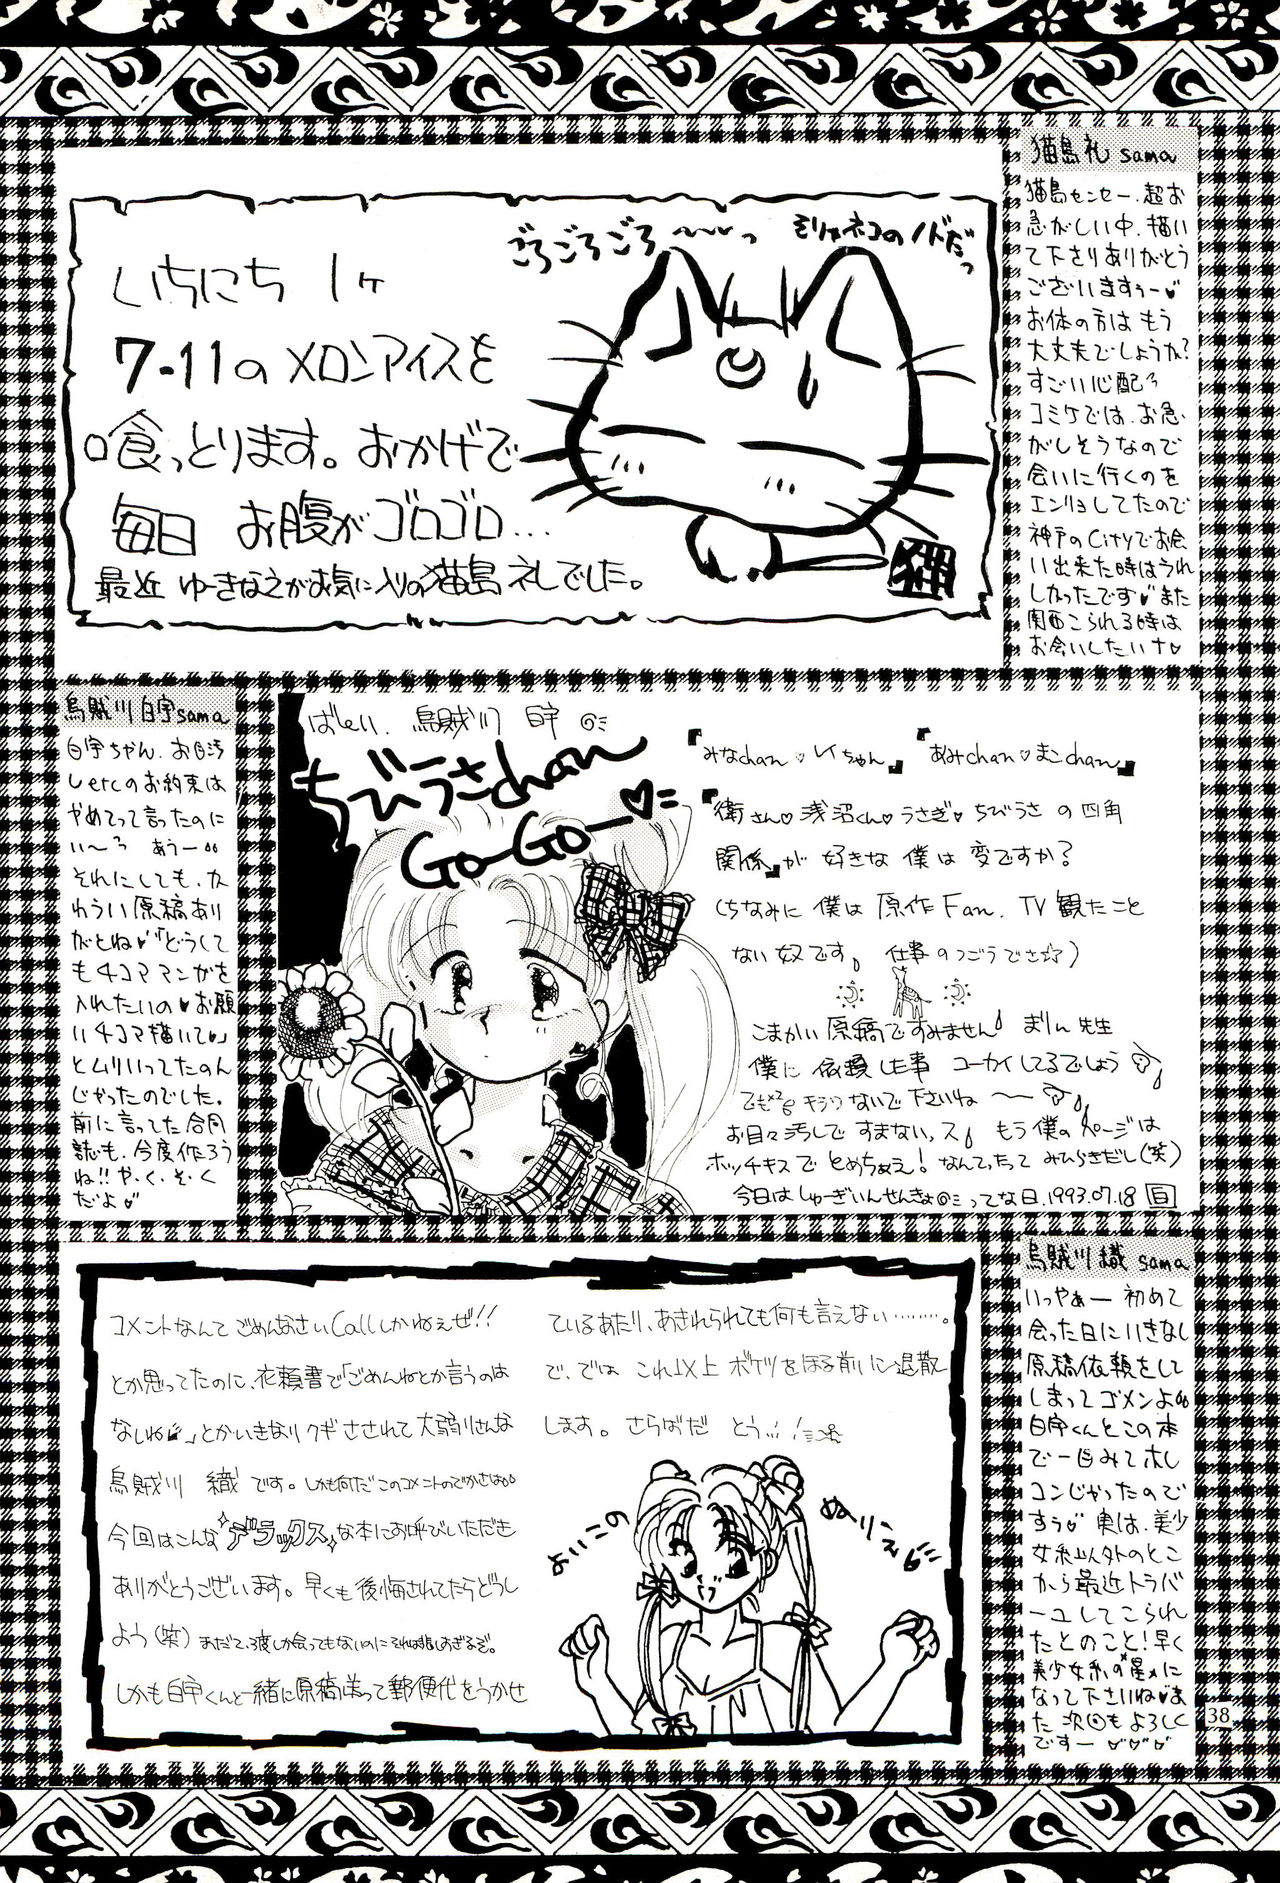 猫島礼 sama
猫島センセー、超お
急がしい中、描い
て下さりありがとう
ございますぅー♥
お体の方は もう
大丈夫でしょうか?
すごい心配〜
コミケでは、お急
がしそうなので
会いに行くのを
エンリョしてたので
神戸のCityでお会
い出来た時はうれ
しかったです♥また
関西こられる時は
お会いしたいナ♥
ごろごろごろ〜〜〜っ
そりゃネコのノドだっ
いちにち 1ヶ
7-11の メロンアイスを
喰っとります。おかげで
毎日 お腹がゴロゴロ…
最近 ゆーきなえがお気に入りの猫島 礼でした。
烏賊川 白宇sama
白宇ちゃん、お目汚
しetcのお約束は
やめてって言ったのに
い〜〜 あぅー
それにしても、か
わうい原稿あり
がとね♥「どうして
も4コママンガを
入れたいの♥お願
い4コマ描いて♥」
とムリいってたのん
じゃったのでした。
前に言ってた合同
誌も、今度作ろう
ね!!や・く・そ・く
だよ♥
ばvい、烏賊川 白宇
ちびうさchan
Go-Go-♥
『みなchan♥レイちゃん』『あみchan♥まこchan』
『衛さん♥浅沼くん♥うさぎ♥ちびうさ の 四角
関係』が 好きな 僕は 変ですか?
(ちなみに 僕は 原作Fan、TV観たこと
ない奴です。仕事のつごうでさ☆)
こまかい原稿ですみません! まりん先生
僕に 依頼した事 コーカイしてるでしょう
でも キラワないで下さいね 〜
お目々汚しで すまないっス! もう僕のページは
ホッチキスで とめちゃえ! なんてったって みひらきだし(笑)
今日は しゅーぎいんせんきょってな日、1993.07.18 白
烏賊川 織 sama
いっやぁー 初めて
会った日にいきなし
原稿依頼をして
しまってゴメンよ
白宇くんとこの本
で一目みてホレ
コンじゃったので
すぅ♥ 実は、美少
女系以外のとこ
から最近トラバ
ーユしてこられ
たとのこと!早く
美少女系の"星"に
なって下さいね♥ま
た 次回も よろしく
ですー ♥♥♥
コメントなんて ごめんなさいCallしかねぇぜ!!
とか思ってたのに、依頼書で「ごめんねとか言うのは
なしね♥」とかいきなりクギさされて大弱りさんな
烏賊川 織です。しかも何だこのコメントのでかさは
今回はこんなデラックスな本にお呼びいただき
ありがとうございます。早くも後悔されてたらどうし
よう(笑) まだて、1度しか会ってもないのにそれは悲しすぎるぞ。
しかも白宇くんと一緒に原稿送って郵便代をうかせ
ているあたり、あきれられても何も言えない………。
で、では これ以上 ボケツをほる前に退散
します。さらばだ とう
よいこの
ぬりえ
38